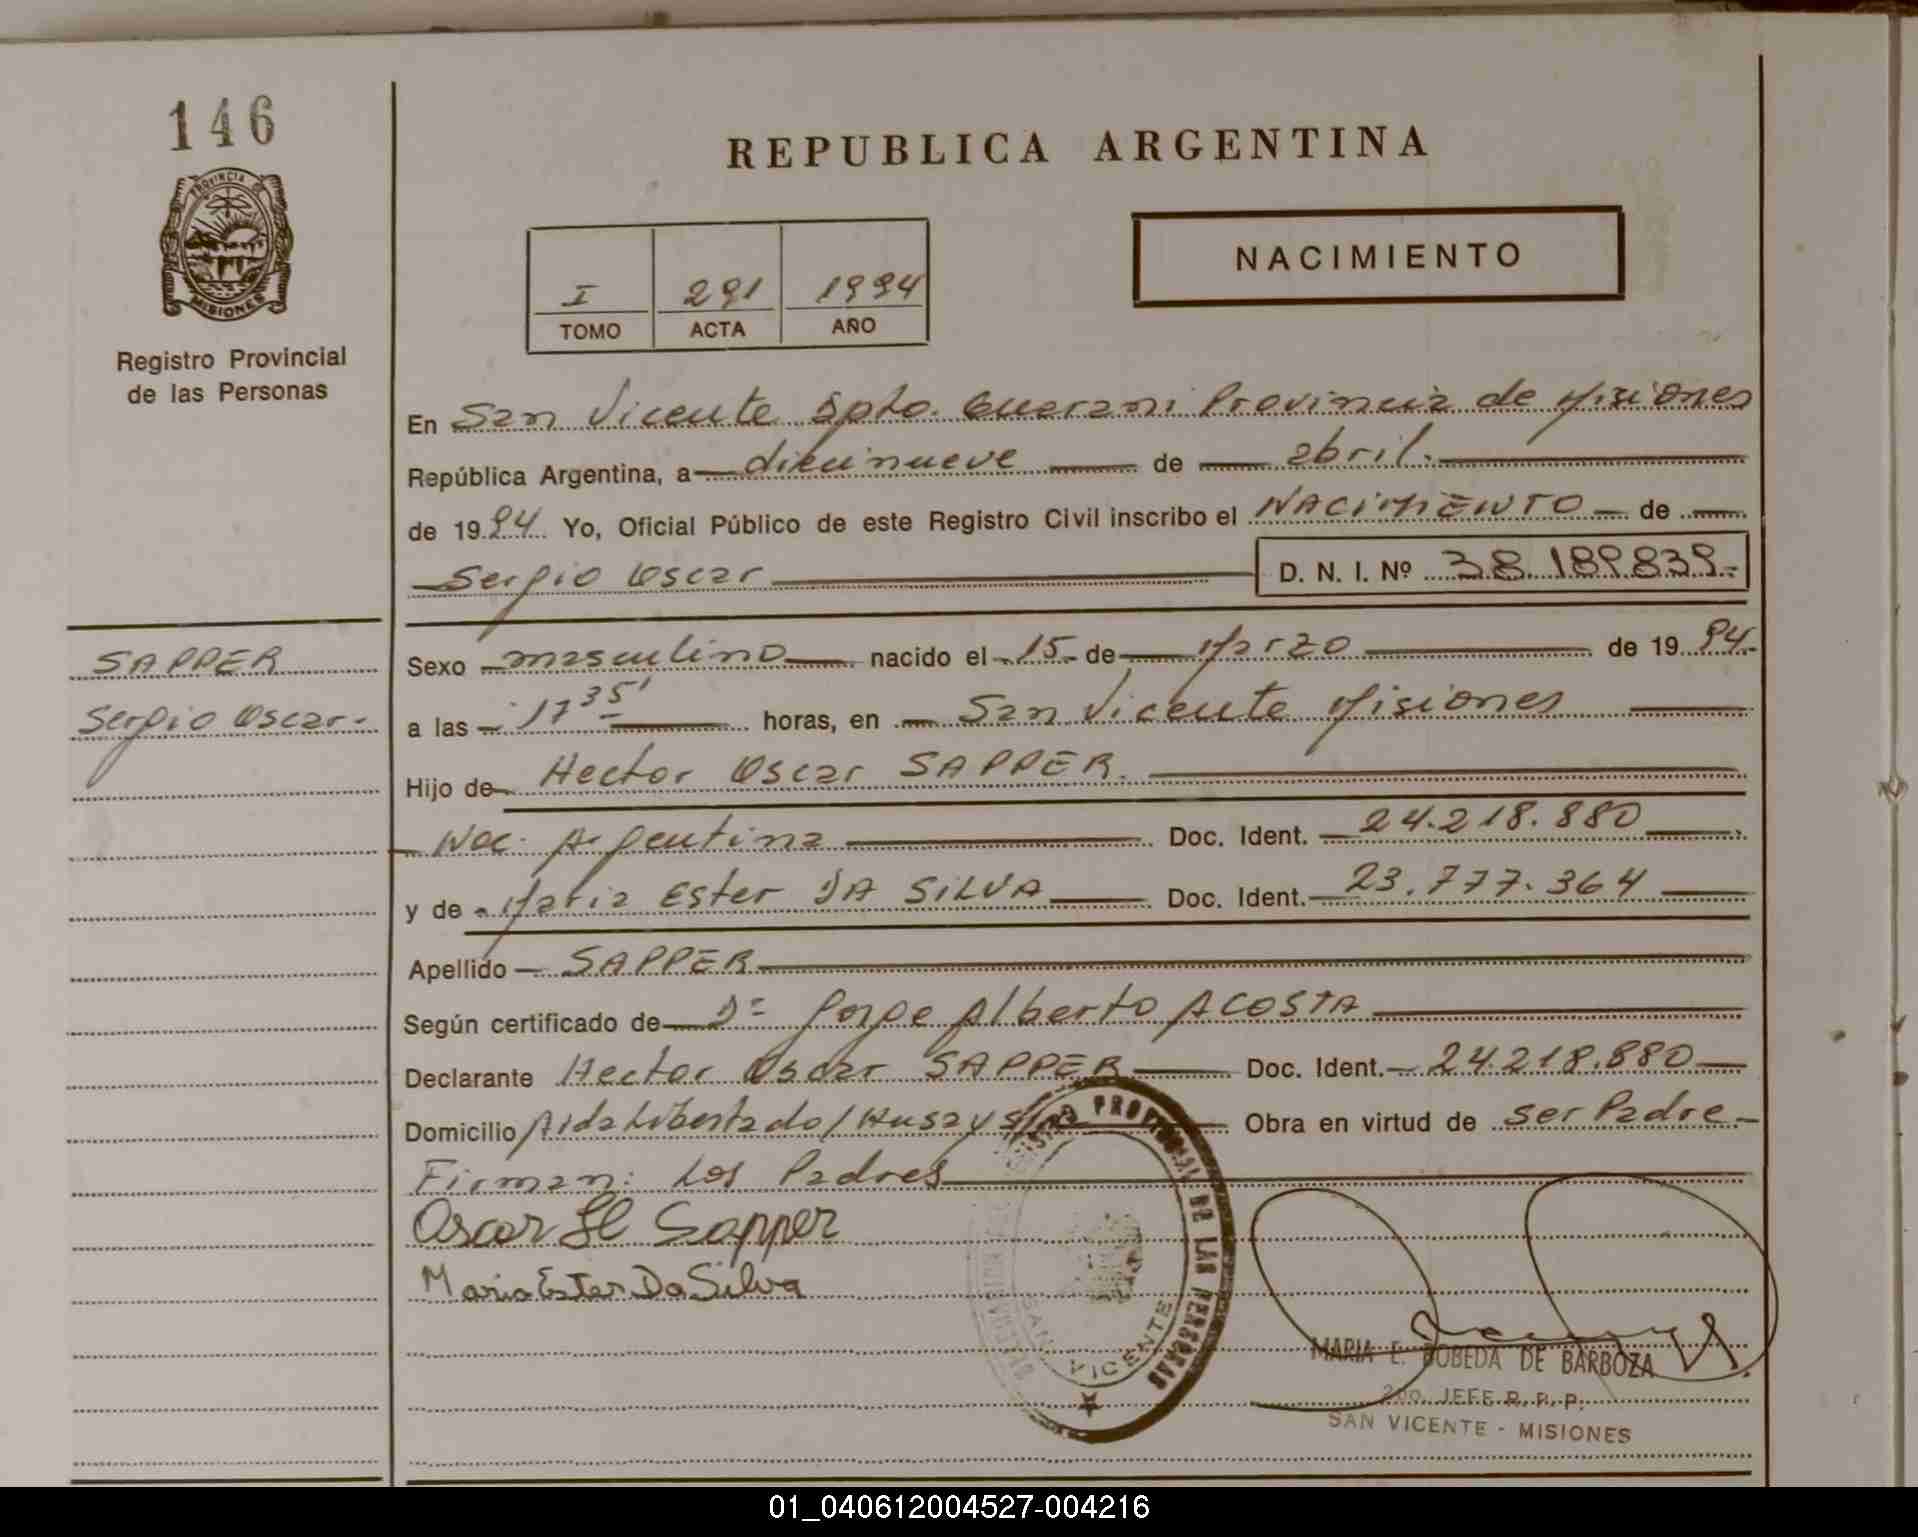 146
PROVINCIA DE
MISIONES
Registro Provincial
de las Personas
REPUBLICA ARGENTINA
NACIMIENTO
I 291 1994
TOMO ACTA AÑO
En San Vicente Dpto. Guarani Provincia de Misiones
República Argentina, a diecinueve de abril.
de 1994 Yo, Oficial Público de este Registro Civil inscribo el NACIMIENTO de
Sergio Oscar D. N. I. Nº 38.189.839.-
SAPPER
Sergio Oscar.-
Sexo masculino nacido el 15 de Marzo de 1994.
a las 17 35' horas, en San Vicente Misiones
Hijo de Hector Oscar SAPPER.
Nac. Argentina Doc. Ident. 24.218.880
y de Maria Ester DA SILVA Doc. Ident. 23.777.364
Apellido SAPPER
Según certificado de Dº Jorge Alberto ACOSTA
Declarante Hector Oscar SAPPER Doc. Ident. 24.218.880
Domicilio Avda Libertado/ Obra en virtud de ser Padre
Firman: Los Padres
Oscar H Sapper
Maria Ester Da Silva
REGISTRO PROVINCIAL DE LAS PERSONAS
SAN VICENTE
MARIA E. BOBEDA DE BARBOZA
2do. JEFE R. P. P.
SAN VICENTE - MISIONES
01_040612004527-004216